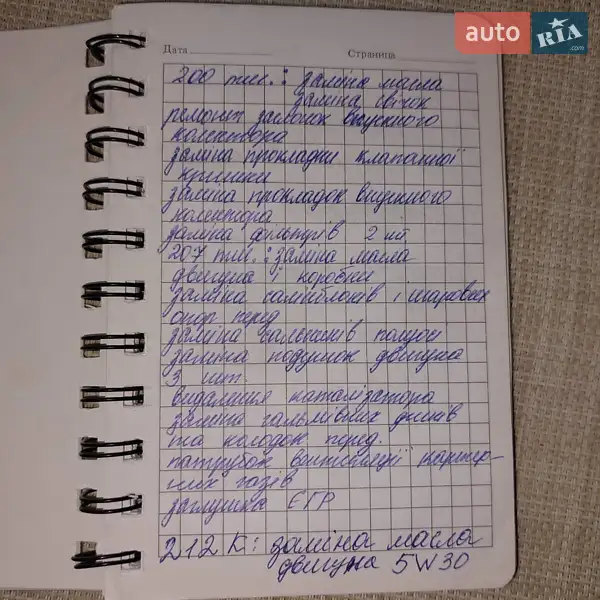 auto RIA .com
Дата Страница
200 тис.: заміна масла
заміна свічок
ремонт заслонок впускного
колектора
заміна прокладки клапанної
кришки
заміна прокладок впускного
колектора
заміна фільтрів 2 шт
207 тис.: заміна масла
двигуна і коробки
заміна сайлентблоків і шарових
опор перед
заміна сальників полуосі
заміна подушок двигуна
3 шт.
видалення каталізатора
заміна гальмівних дисків
та колодок перед.
патрубок вентиляції картер-
них газів
заглушка ЄГР
212 К: заміна масла
двигуна 5W30